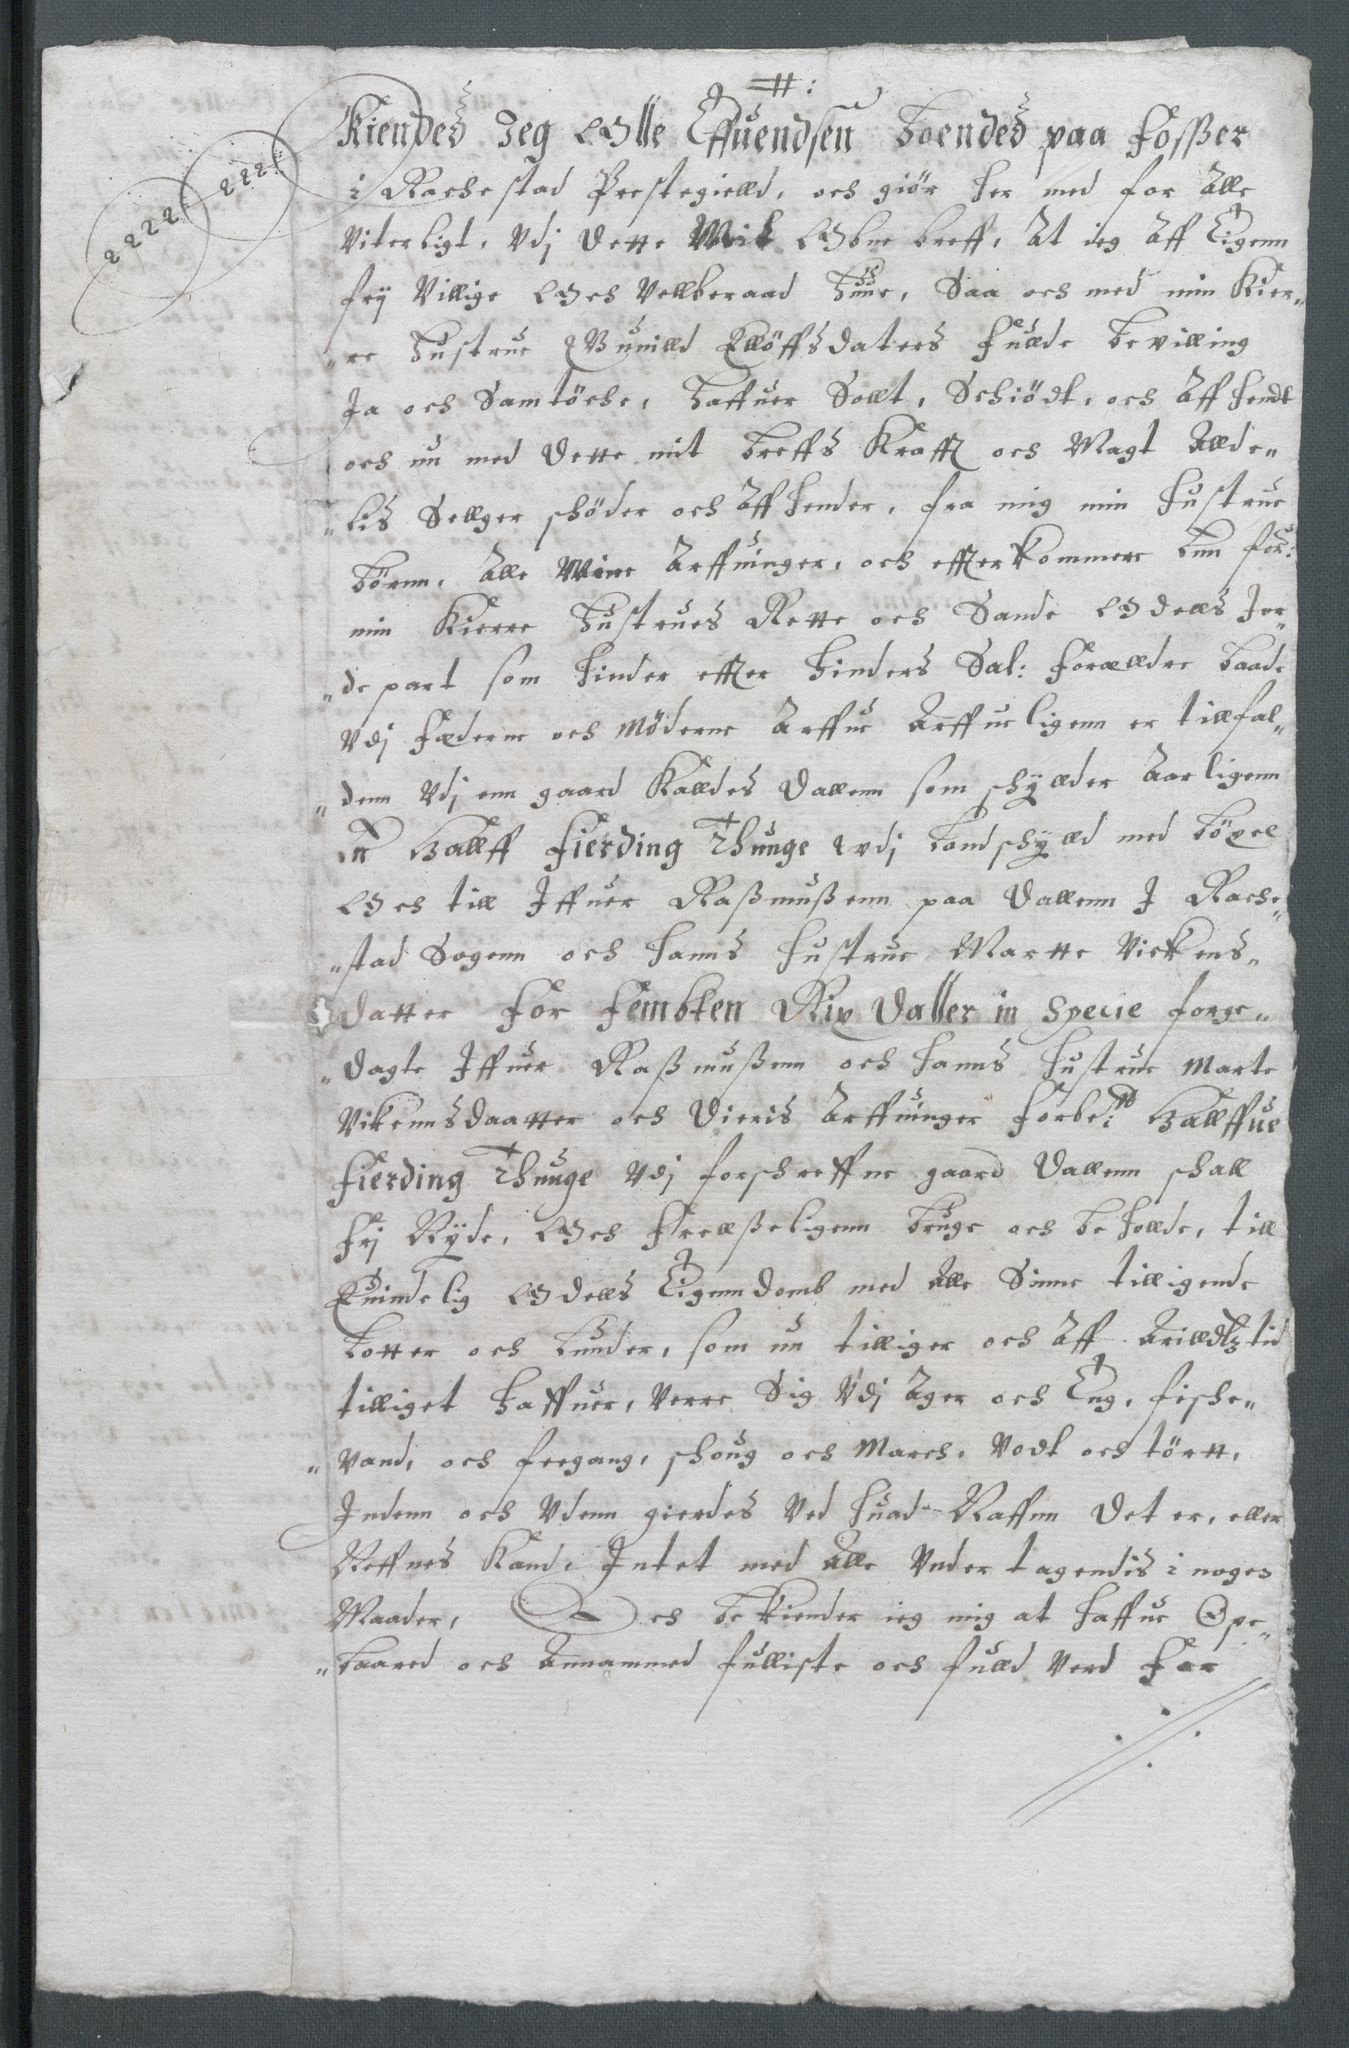 Kiendes Jeg Olle Effuendsen boendes paa Fosser
i Rachestad Prestegielld, och giör her med for Alle
Viterligt, Vdj dette Mit Obne breff, At ieg Aff Eigenn
frij Villige Och Vellberaad Huue, Saa och med min Kier„
„re Hustrue Gunilld Ellöffsdaters Fullde bevilling
Ja och Samtöche, Haffuer Sollt, Schiödt, och Aff hendt
och nu med dette mit breffs Krafft och Magt Allde„
„lis Sellger schöder och Aff hender, fra mig min hustrue
börnn, Alle Mine Arffuinger, och effterkommere
min Kierre Hustrues Rette och Sande Odells Jor„
„de part som hinder effter hinders Sal: Forælldre baade
Vdj Fæderne och Möderne Arffue Arffueligenn er tillfal„
„denn Vdj enn gaard Kalldes Dallenn som schyllder Aarligenn
Halff Fierding Thunge vdj landschylld med böxel
Och till Jffuer Rasmussenn paa Dallenn J Rache„
„stad Sogenn och hanns hustrue Martte Vickens„
datter For Fembten Rix Daller in Specie forge„
„dagte Jffuer Rasmussenn och hanns hustrue Marte
Vikennsdaatter och dieris Arffuinger Forbe:te Hallffue
Fierding Thunge Vdj forschreffne gaard Dallenn schall
Frj Nyde, Och Frellßeligenn bruge och beholde, till
Euindelig Odells Eigenndomb med Alle Sinne tilligende
Lotter och Lunder, som nu tilliger och Aff Arilldtz tid
tilliget haffuer, Verre Sig Vdj Ager och Eng, fische„
„vand, och feegang, schoug och March, Vodt och törtt,
Indenn och Vdenn gierdes Ved huad Naffnn det er, eller
Neffnes Kand, Intet med Alle Vndertagendis i noger
Maader, Och bekiender ieg mig at haffue Ope„
„baared och Annammed fulliste och fulld Verd For